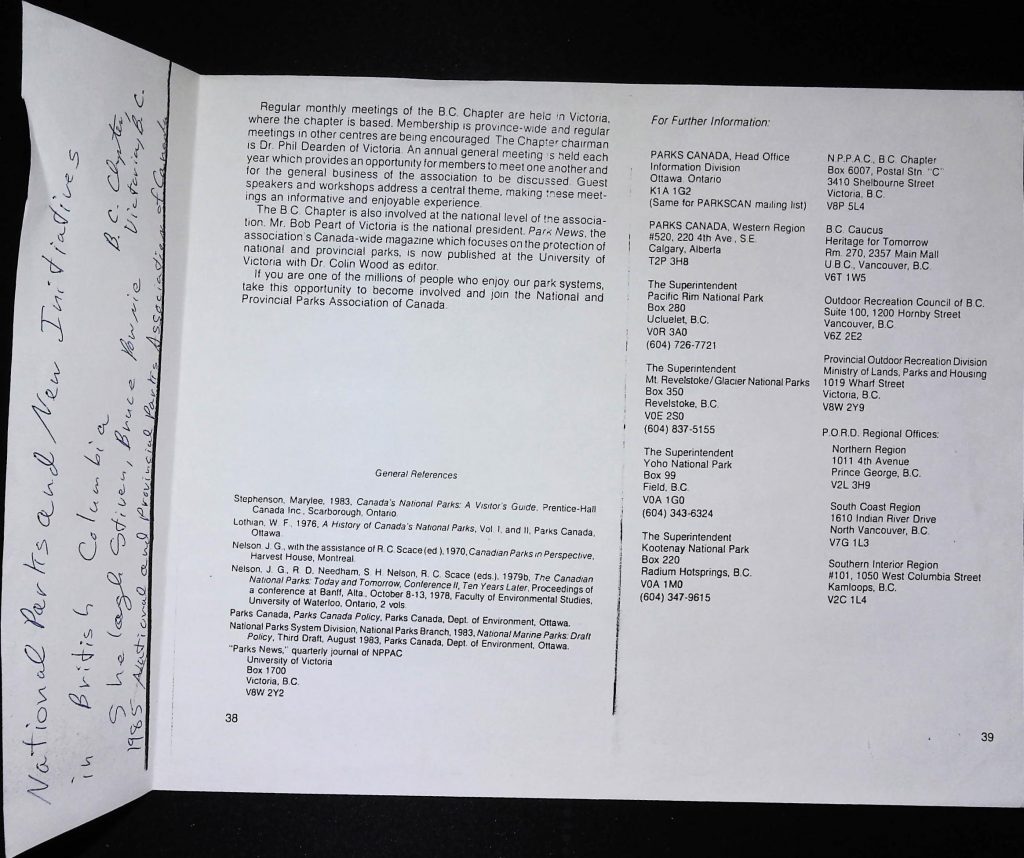 National Parks and New Initiatives
in British Columbia B.C. Chapter,
Shelagh Stiven, Bruce Downie Victoria, B.C.
1985 National and Provincial Parks Association of Canada
Regular monthly meetings of the B.C. Chapter are held in Victoria,
where the chapter is based. Membership is province-wide and regular
meetings in other centres are being encouraged. The Chapter chairman
is Dr. Phil Dearden of Victoria. An annual general meeting is held each
year which provides an opportunity for members to meet one another and
for the general business of the association to be discussed. Guest
speakers and workshops address a central theme, making these meet-
ings an informative and enjoyable experience.
The B.C. Chapter is also involved at the national level of the associa-
tion. Mr. Bob Peart of Victoria is the national president. Park News, the
association's Canada-wide magazine which focuses on the protection of
national and provincial parks, is now published at the University of
Victoria with Dr. Colin Wood as editor.
If you are one of the millions of people who enjoy our park systems,
take this opportunity to become involved and join the National and
Provincial Parks Association of Canada.
General References
Stephenson, Marylee, 1983, Canada's National Parks: A Visitor's Guide. Prentice-Hall
Canada Inc., Scarborough, Ontario.
Lothian, W. F., 1976, A History of Canada's National Parks, Vol. I, and II, Parks Canada,
Ottawa.
Nelson, J. G., with the assistance of R. C. Scace (ed.), 1970, Canadian Parks in Perspective,
Harvest House, Montreal.
Nelson, J. G., R. D. Needham, S. H. Nelson, R. C. Scace (eds.), 1979b, The Canadian
National Parks: Today and Tomorrow, Conference II, Ten Years Later, Proceedings of
a conference at Banff, Alta., October 8-13, 1978, Faculty of Environmental Studies,
University of Waterloo, Ontario, 2 vols.
Parks Canada, Parks Canada Policy, Parks Canada, Dept. of Environment, Ottawa.
National Parks System Division, National Parks Branch, 1983, National Marine Parks: Draft
Policy, Third Draft, August 1983, Parks Canada, Dept. of Environment, Ottawa.
"Parks News," quarterly journal of NPPAC
University of Victoria
Box 1700
Victoria, B.C.
V8W 2Y2
38
For Further Information:
PARKS CANADA, Head Office
Information Division
Ottawa, Ontario
K1A 1G2
(Same for PARKSCAN mailing list)
PARKS CANADA, Western Region
#520, 220 4th Ave., S.E.
Calgary, Alberta
T2P 3H8
The Superintendent
Pacific Rim National Park
Box 280
Ucluelet, B.C.
V0R 3A0
(604) 726-7721
The Superintendent
Mt. Revelstoke/Glacier National Parks
Box 350
Revelstoke, B.C.
V0E 2S0
(604) 837-5155
The Superintendent
Yoho National Park
Box 99
Field, B.C.
V0A 1G0
(604) 343-6324
The Superintendent
Kootenay National Park
Box 220
Radium Hotsprings, B.C.
V0A 1M0
(604) 347-9615
N.P.P.A.C., B.C. Chapter
Box 6007, Postal Stn. "C"
3410 Shelbourne Street
Victoria, B.C.
V8P 5L4
B.C. Caucus
Heritage for Tomorrow
Rm. 270, 2357 Main Mall
U.B.C., Vancouver, B.C.
V6T 1W5
Outdoor Recreation Council of B.C.
Suite 100, 1200 Hornby Street
Vancouver, B.C.
V6Z 2E2
Provincial Outdoor Recreation Division
Ministry of Lands, Parks and Housing
1019 Wharf Street
Victoria, B.C.
V8W 2Y9
P.O.R.D. Regional Offices:
Northern Region
1011 4th Avenue
Prince George, B.C.
V2L 3H9
South Coast Region
1610 Indian River Drive
North Vancouver, B.C.
V7G 1L3
Southern Interior Region
#101, 1050 West Columbia Street
Kamloops, B.C.
V2C 1L4
39